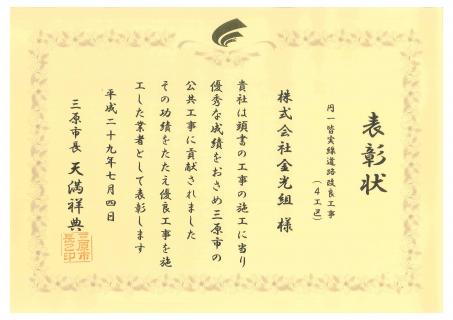 表彰状
円一皆実線道路改良工事
(4工区)
株式会社金光組 様
貴社は頭書の工事の施工に当り
優秀な成績をおさめ三原市の
公共工事に貢献されました
その功績をたたえ優良工事を施
工した業者として表彰します
平成二十九年七月四日
三原市長 天満祥典
三原市
長之印